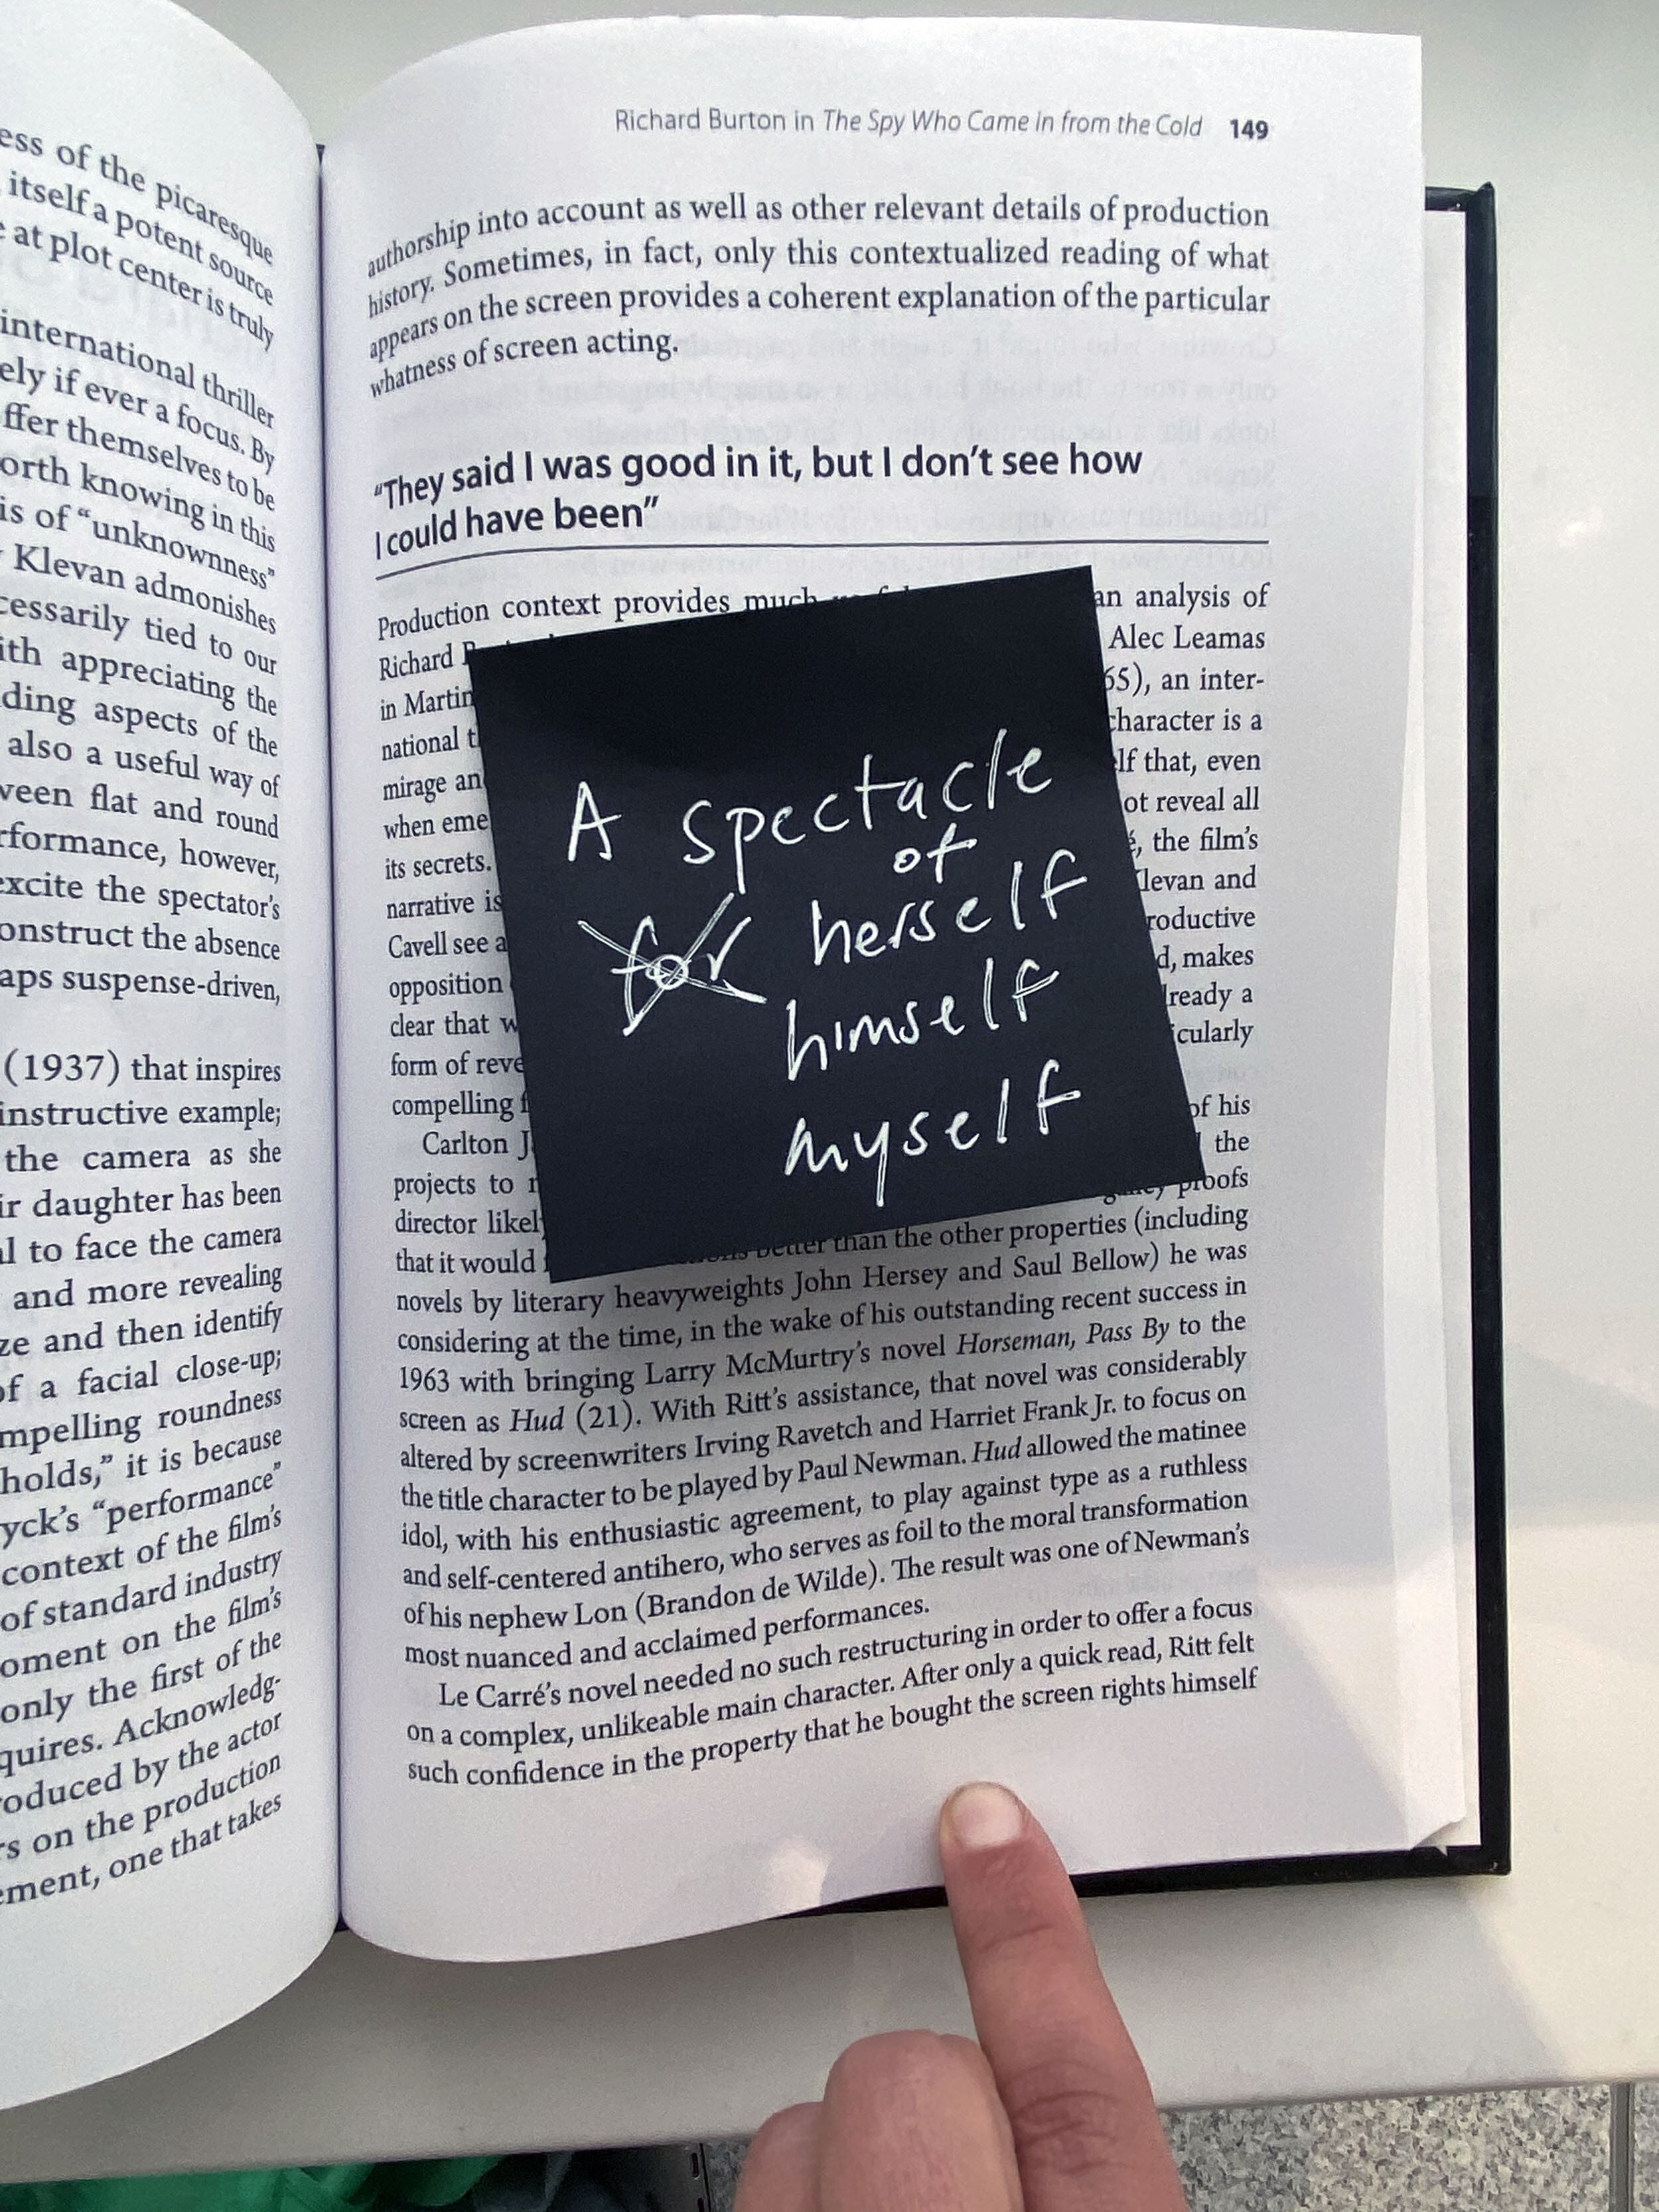 ess of the picaresque
itself a potent source
at plot center is truly
international thriller
ely if ever a focus. By
ffer themselves to be
orth knowing in this
is of “unknownness”
Klevan admonishes
cessarily tied to our
ith appreciating the
ding aspects of the
also a useful way of
ween flat and round
rformance, however,
excite the spectator’s
onstruct the absence
aps suspense-driven,
(1937) that inspires
instructive example;
the camera as she
ir daughter has been
al to face the camera
and more revealing
ze and then identify
of a facial close-up;
mpelling roundness
holds,” it is because
yck’s “performance”
context of the film’s
of standard industry
oment on the film’s
only the first of the
quires. Acknowledg-
roduced by the actor
rs on the production
ement, one that takes
Richard Burton in The Spy Who Came in from the Cold 149
authorship into account as well as other relevant details of production
history. Sometimes, in fact, only this contextualized reading of what
appears on the screen provides a coherent explanation of the particular
whatness of screen acting.
“They said I was good in it, but I don’t see how
I could have been”
Production context provides much an analysis of
Richard Alec Leamas
in Martin 65), an inter-
national t character is a
mirage an elf that, even
when eme ot reveal all
its secrets. é, the film’s
narrative is Klevan and
Cavell see a roductive
opposition d, makes
clear that w lready a
form of reve icularly
compelling f
Carlton J of his
projects to r the
director likel galley proofs
that it would better than the other properties (including
novels by literary heavyweights John Hersey and Saul Bellow) he was
considering at the time, in the wake of his outstanding recent success in
1963 with bringing Larry McMurtry’s novel Horseman, Pass By to the
screen as Hud (21). With Ritt’s assistance, that novel was considerably
altered by screenwriters Irving Ravetch and Harriet Frank Jr. to focus on
the title character to be played by Paul Newman. Hud allowed the matinee
idol, with his enthusiastic agreement, to play against type as a ruthless
and self-centered antihero, who serves as foil to the moral transformation
of his nephew Lon (Brandon de Wilde). The result was one of Newman’s
most nuanced and acclaimed performances.
Le Carré’s novel needed no such restructuring in order to offer a focus
on a complex, unlikeable main character. After only a quick read, Ritt felt
such confidence in the property that he bought the screen rights himself
A spectacle
of
for herself
himself
myself